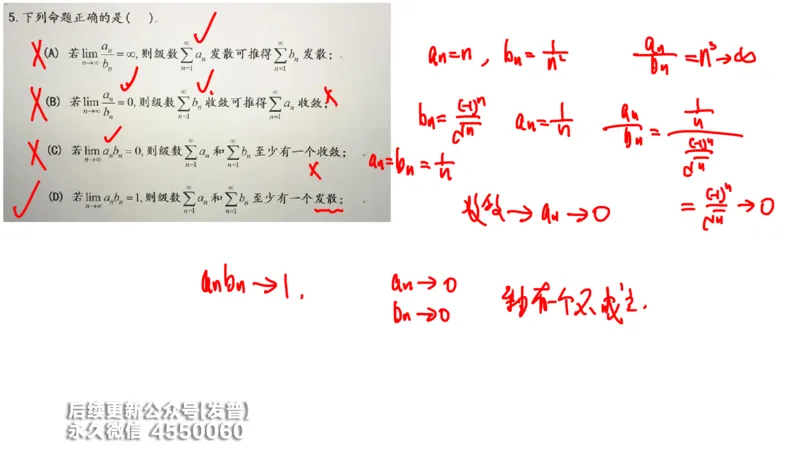 5.下列命题正确的是( ).
(A) 若lim n→∞ aₙ/bₙ=∞,则级数∑ n=1 ∞ aₙ发散可推得∑ n=1 ∞ bₙ发散;
(B) 若lim n→∞ aₙ/bₙ=0,则级数∑ n=1 ∞ bₙ收敛可推得∑ n=1 ∞ aₙ收敛;
(C) 若lim n→∞ aₙbₙ=0,则级数∑ n=1 ∞ aₙ和∑ n=1 ∞ bₙ至少有一个收敛;
(D) 若lim n→∞ aₙbₙ=1,则级数∑ n=1 ∞ aₙ和∑ n=1 ∞ bₙ至少有一个发散;
aₙ=n, bₙ=1/n² aₙ/bₙ=n³→∞
bₙ=(-1)ⁿ/√n aₙ=1/n aₙ/bₙ=(1/n)/((-1)ⁿ/√n)
aₙ=bₙ=1/n
收敛→aₙ→0 =(-1)ⁿ/√n→0
aₙbₙ→1, aₙ→0
bₙ→0 有一个不成立.
后续更新公众号(发普)
永久微信 4550060